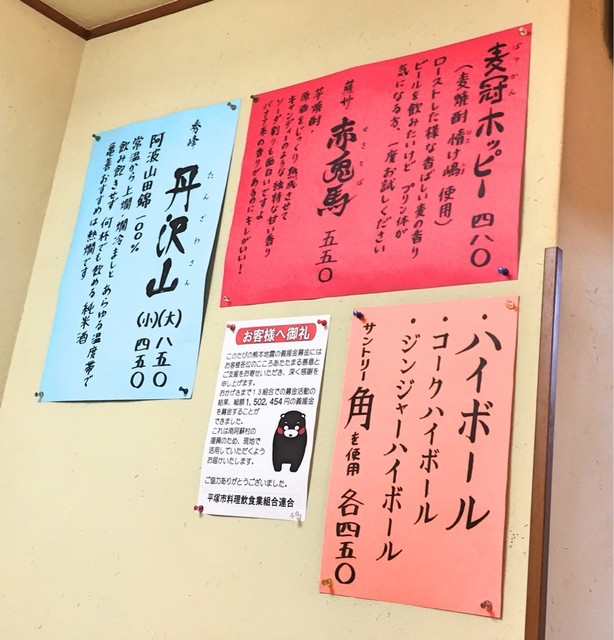 麦冠ホッピー 四八〇
ばっかん
(麦焼酎 情け嶋 使用)
ローストした様な香ばしい麦の香り
ビールを飲みたいけど プリン体が
気になる方、一度お試しください
薩州 赤兎馬 五五〇
せきとば
芋焼酎・
原酒をじっくり熟成させて
キャンディーのような独特な甘い香り
ソーダ割りも面白いですよ
バナナ系の香りがあるのにキレがいい!
秀峰 丹沢山
たんざわさん
(大) 八五〇
(小) 四五〇
阿波山田錦一〇〇%
常温から上燗・燗冷ましと あらゆる温度帯で
飲み飽きせず 何杯でも飲める 純米酒
亀善おすすめは熱燗です
お客様へ御礼
このたびの熊本地震の義援金募金には
お客様各位のこころあたたまる善意と
ご支援をお寄せいただき、深く感謝を
申し上げます。
おかげさまで13組合での募金活動の
結果、総額1,502,454円の義援金
を募金することが
できました。
これは南阿蘇村の
復興のため、現地で
活用していただくよう
お届けいたします。
ご協力ありがとうございました。
平塚市料理飲食業組合連合
・ハイボール
・コークハイボール
・ジンジャーハイボール
サントリー 角を使用 各四五〇